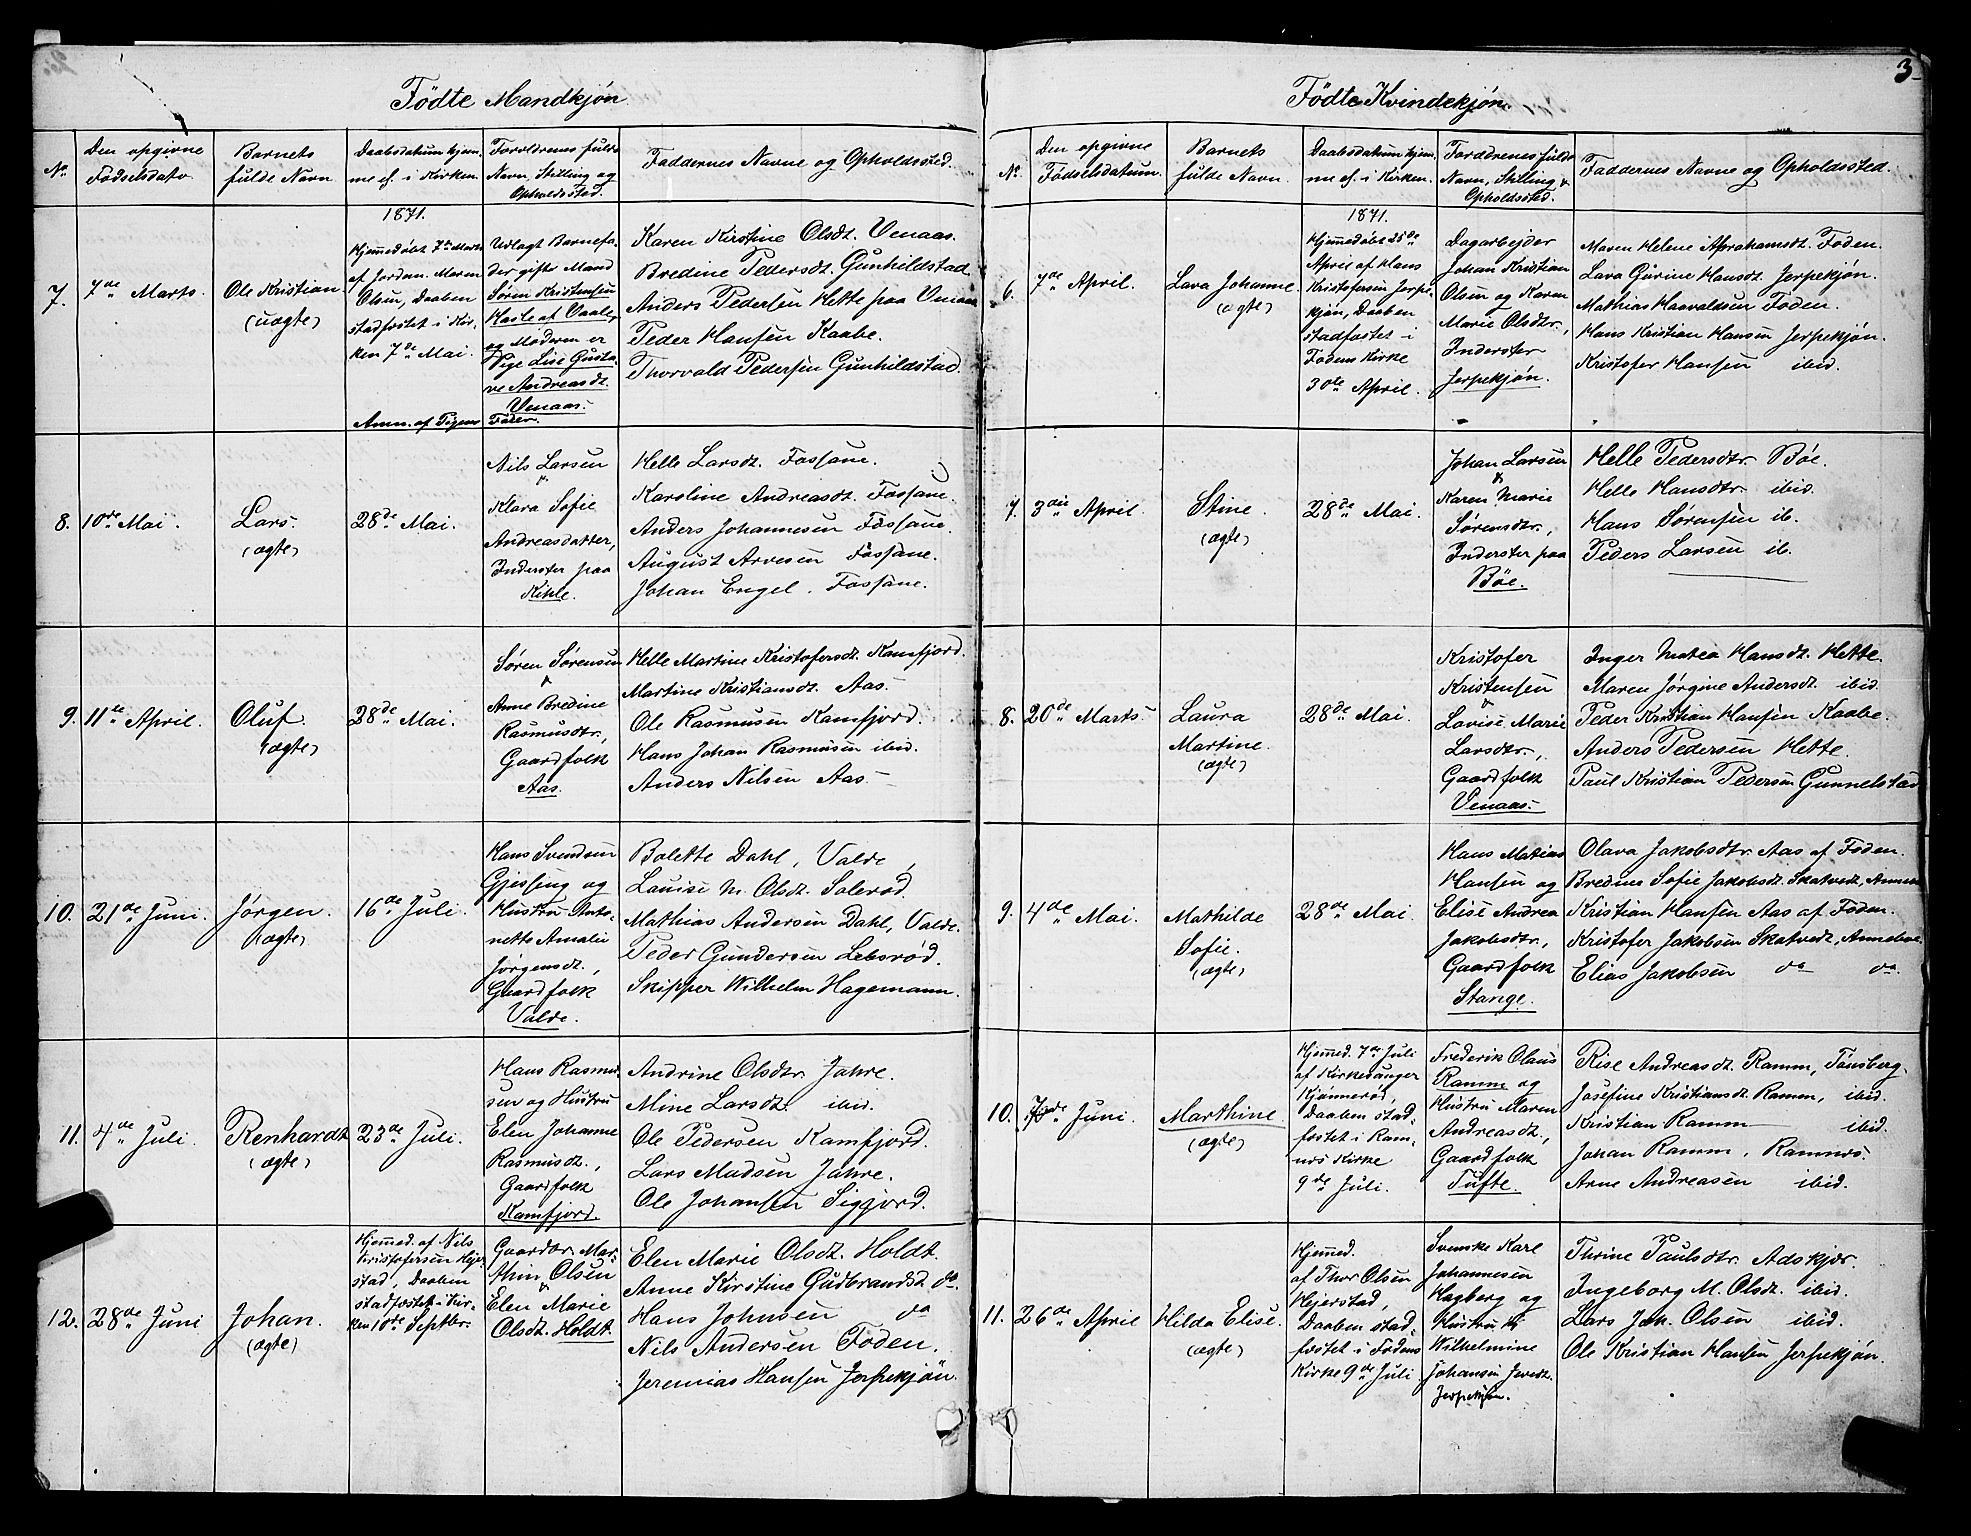 3
Födte Mandkjøn
No.
Den opgivne
Fødselsdato.
Barnets
fulde Navn
Daabsdatum hjem-
me el. i Kirken.
Forældrenes fulde
Navn, Stilling og
Opholdssted.
Faddernes Navne og Opholdssted.
7.
7de Marts.
Ole Kristian
(uægte)
1871.
Hjemmedøbt 7de Marts
af Jordm. Maren
Olsen, Daaben
stadfæstet i Kir-
ken 7de Mai.
Anm. af Pigens
Fader.
Udlagt Barnefa-
der gifte Mand
Søren Kristensen
Hasle af Vaale,
og Moderen er
Pige Lise Gusta-
ve Andreasdt.
Venaas.
Karen Kirstine Olsdt. Venaas.
Bredine Pedersdt. Gunhildstad.
Anders Pedersen Hette paa Venaas
Peder Hansen Kaabe.
Thorvald Pedersen Gunhildstad.
8.
10de Mai.
Lars.
(ægte)
28de Mai.
Nils Larsen
&
Klara Sofie
Andreasdatter,
Inderster paa
Kihle.
Helle Larsdt. Fossane.
Karoline Andreasdt. Fossane.
Anders Johannesen Fossane.
August Arvesen Fossane.
Johan Engel. Fossane.
9.
11te April.
Oluf.
(ægte)
28de Mai.
Søren Sørensen
&
Anne Bredine
Rasmusdtr.,
Gaardfolk
Aas.
Helle Martine Kristofersdt. Kamfjord.
Martine Kristiansdt. Aas.
Ole Rasmusen Kamfjord.
Hans Johan Rasmusen ibid.
Anders Nilsen Aas.
10.
21de Juni.
Jørgen.
(ægte)
16de Juli.
Hans Svendsen
Gjessing og
Hustru Anto-
nette Amalie
Jørgensdt.,
Gaardfolk
Valde.
Bolette Dahl, Valde,
Lauise M. Olsdt. Solerød.
Mathias Andersen Dahl, Valde.
Peder Gundersen Lebsrød.
Skipper Wilhelm Hagemann.
11.
4de Juli.
Renhardt
(ægte)
23de Juli.
Hans Rasmu-
sen og Hustru
Elen Johanne
Rasmusdt.,
Gaardfolk
Kamfjord.
Andrine Olsdtr. Jahre.
Mine Larsdt. ibid.
Ole Pedersen Kamfjord.
Lars Madsen Jahre.
Ole Johansen Sigjord.
12.
28de Juni
Johan.
(ægte)
Hjemmed. af Nils
Kristofersen Hejer-
stad, Daaben
stadfæstet i Kir-
ken 10de Septbr.
Gaardbr. Mar-
thin Olsen
&
Elen Marie
Olsdt. Holdt.
Elen Marie Olsdt. Holdt.
Anne Kirstine Gudbrandsdt. do.
Hans Johnsen do
Nils Andersen Foden.
Jeremias Hansen Jerpekjøn.
Födte Kvindekjøn.
No.
Den opgivne
Fødselsdatum.
Barnets
fulde Navn.
Daabsdatum hjem-
me el. i Kirken.
Forældrenes fulde
Navn, Stilling &
Opholdssted.
Faddernes Navne og Opholdssted.
6.
7de April.
Lava Johanne.
(ægte)
1871.
Hjemmedøbt 25de
April af Hans
Kristofersen Jerpe-
kjøn, Daaben
stadfæstet i
Fodens Kirke
30te April.
Dagarbejder
Johan Kristian
Olsen og Karen
Marie Olsdtr.,
Inderster
Jerpekjøn.
Maren Helene Abrahamsdt. Foden.
Lava Gurine Hansdt. Jerpekjøn.
Mathias Haavaldsen Foden.
Hans Kristian Hansen Jerpekjøn.
Kristofer Hansen ibid.
7.
3die April.
Stine.
(ægte)
28de Mai.
Johan Larsen
&
Karen Marie
Sørensdtr.,
Inderster paa
Bøe.
Helle Pedersdtr. Bøe.
Helle Hansdtr. ibid.
Hans Sørensen ib.
Peders Larsen ib.
8.
20de Marts
Laura
Martine.
(ægte)
28de Mai.
Kristofer
Kristensen
&
Lovise Marie
Larsdtr.,
Gaardfolk
Venaas.
Inger Matea Hansdt. Hette.
Maren Jørgine Andersdt. ibid.
Peder Kristian Hansen Kaabe.
Anders Pedersen Hette.
Paul Kristian Pedersen Gunnelstad
9.
4de Mai.
Mathilde
Sofie.
(ægte)
28de Mai.
Hans Matias
Hansen og
Elise Andrea
Jakobsdtr.,
Gaardfolk
Stange.
Olava Jakobsdtr. Aas af Foden.
Bredine Sofie Jakobsdt. Skatvedt,
Kristian Hansen Aas af Foden.
Kristofer Jakobsen Skatvedt, Anneboe.
Elias Jakobsen do do.
10.
7de Juni.
Marthine
(ægte)
Hjemmed. 7de Juli
af Kirkesanger
Kjønnerød,
Daaben stad-
fæstet i Ram-
nes Kirke
9de Juli.
Frederik Olaus
Ramm og
Hustru Maren
Andreasdt.,
Gaardfolk
Tufte.
Rise Andreasdt. Ramm, Tønsberg.
Josefine Kristiansdt. Ramm, ibid.
Kristian Ramm ibid.
Johan Ramm, Ramnes.
Arne Andreasen ibid.
11.
26de April
Hilda Elise.
(ægte)
Hjemmed.
af Thor Olsen
Hejerstad,
Daaben stad-
fæstet i Fodens
Kirke 9de Juli.
Svenske Karl
Johannesen
Hagberg og
Hustru
Wilhelmine
Johansen
Jerpekjøn.
Thrine Paulsdtr. Adskjær.
Ingeborg M. Olsdt. ibid.
Lars Joh. Olsen ibid.
Ole Kristian Hansen Jerpekjøn.